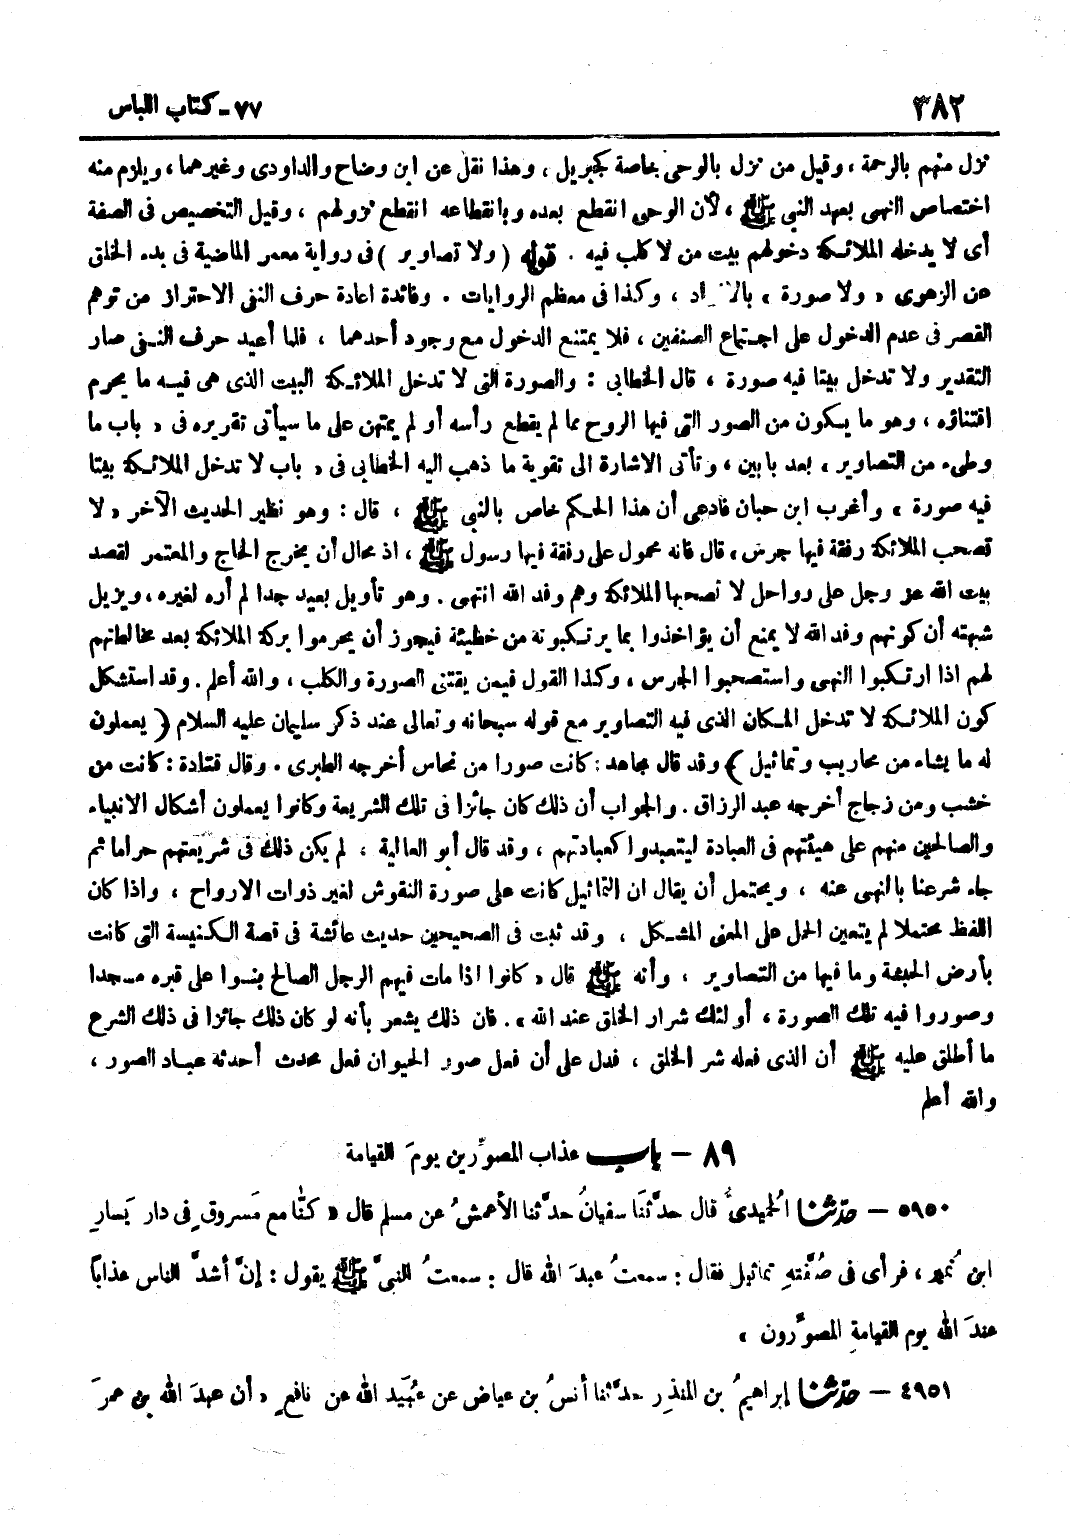 ٣٨٢
٧٧ - كتاب اللباس
نزل منهم بالرحمة ، وقيل من نزل بالوحى خاصة كجبريل ، وهذا نقل عن ابن وضاح والداودى وغيرهما ، ويلزم منه
اختصاص النهى بعهد النبى ﷺ ، لأن الوحى انقطع بعده وبانقطاعه انقطع نزولهم ، وقيل التخصيص فى الصفة
أى لا يدخله الملائكة دخولهم بيت من لا كلب فيه . قوله ( ولا تصاوير ) فى رواية معمر الماضية فى بدء الخلق
عن الزهرى « ولا صورة » ، وكذا فى معظم الروايات . وفائدة اعادة حرف النفى الاحتراز من توهم
القصر فى عدم الدخول على اجتماع الصنفين ، فلا يمتنع الدخول مع وجود أحدهما ، فلما أعيد حرف النفى صار
التقدير ولا تدخل بيتا فيه صورة ، قال الخطابى : والصورة التى لا تدخل الملائكة البيت الذى هى فيه ما يحرم
اقتناؤه ، وهو ما يكون من الصور التى فيها الروح مما لم يقطع رأسه أو لم يمتهن على ما سيأتى تقريره فى « باب ما
وطىء من التصاوير » بعد بابين ، وتأتى الاشارة الى تقوية ما ذهب اليه الخطابى فى « باب لا تدخل الملائكة بيتا
فيه صورة » وأغرب ابن حبان فادعى أن هذا الحكم خاص بالنبى ﷺ ، قال : وهو نظير الحديث الآخر « لا
تصحب الملائكة رفقة فيها جرس » قال فانه محمول على رفقة فيها رسول ﷺ ، اذ محال أن يخرج الحاج والمعتمر لقصد
بيت الله عز وجل على رواحل لا تصحبها الملائكة وهم وفد الله انتهى . وهو تأويل بعيد جدا لم أره لغيره ، ويزيل
شبهته أن كونهم وفد الله لا يمنع أن يؤاخذوا بما يرتكبونه من خطيئة فيجوز أن يحرموا بركة الملائكة بعد مخالطتهم
لهم اذا ارتكبوا النهى واستصحبوا الجرس ، وكذا القول فيمن يقتنى الصورة والكلب ، والله أعلم . وقد استشكل
كون الملائكة لا تدخل المكان الذى فيه التصاوير مع قوله سبحانه وتعالى عند ذكر سليمان عليه السلام ﴿ يعملون
له ما يشاء من محاريب وتماثيل ﴾ وقد قال مجاهد : كانت صورا من نحاس أخرجه الطبرى . وقال قتادة : كانت من
خشب ومن زجاج أخرجه عبد الرزاق . والجواب أن ذلك كان جائزا فى تلك الشريعة وكانوا يعملون أشكال الانبياء
والصالحين منهم على هيئتهم فى العبادة ليتعبدوا كعبادتهم ، وقد قال أبو العالية ، لم يكن ذلك فى شريعتهم حراما ثم
جاء شرعنا بالنهى عنه ، ويحتمل أن يقال ان التماثيل كانت على صورة النقوش لغير ذوات الارواح ، واذا كان
اللفظ محتملا لم يتعين الحمل على المعنى المشكل ، وقد ثبت فى الصحيحين حديث عائشة فى قصة الكنيسة التى كانت
بأرض الحبشة وما فيها من التصاوير ، وأنه ﷺ قال « كانوا اذا مات فيهم الرجل الصالح بنوا على قبره مسجدا
وصوروا فيه تلك الصورة ، أولئك شرار الخلق عند الله » . فان ذلك يشعر بأنه لو كان ذلك جائزا فى ذلك الشرع
ما أطلق عليه ﷺ أن الذى فعله شر الخلق ، فدل على أن فعل صور الحيوان فعل محدث أحدثه عباد الصور ،
والله أعلم
٨٩ - باب عذاب المصوِّرين يومَ القيامة
٥٩٥٠ - حدّثنا الُحميدىُّ قال حدَّثنَا سفيانُ حدَّثنا الأعمشُ عن مسلم قال « كنَّا مع مَسروقٍ فى دار يَسارِ
ابن نُمير ، فرأى فى صُفَّتهِ تماثيل فقال : سمعتُ عبدَ الله قال : سمعتُ النبىَّ ﷺ يقول : إنَّ أشدَّ الناس عذاباً
عندَ الله يوم القيامةِ المصوِّرون »
٤٩٥١ - حدّثنا إبراهيمُ بن المنذِر حدَّثنا أنسُ بن عياض عن عُبَيد الله عن نافعٍ « أن عبدَ الله بن عمرَ